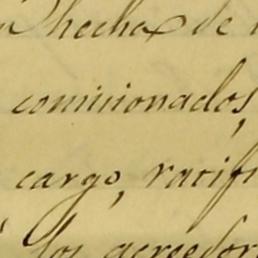 hecha de
comicionados,
cargo, ratifi
los acreedor